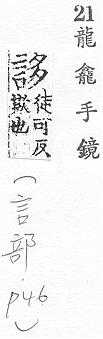 21 龍龕手鏡
徒可反
欺也
(言部. p46)